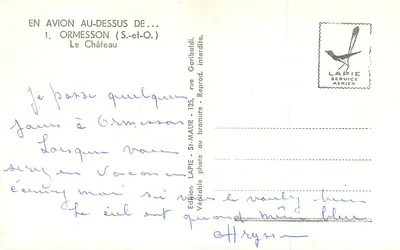 EN AVION AU-DESSUS DE...
1. ORMESSON (S.-et-O.)
Le Château
LAPIE
SERVICE
AÉRIEN
Edition LAPIE - St-MAUR - 125, rue Garibaldi.
Véritable photo au bromure - Reprod. interdite.
Je passe quelques
jours à Ormesson
Lorsque vous
serez en Vacances
écrivez moi si vous le voulez bien
Le ciel est quand même bleu